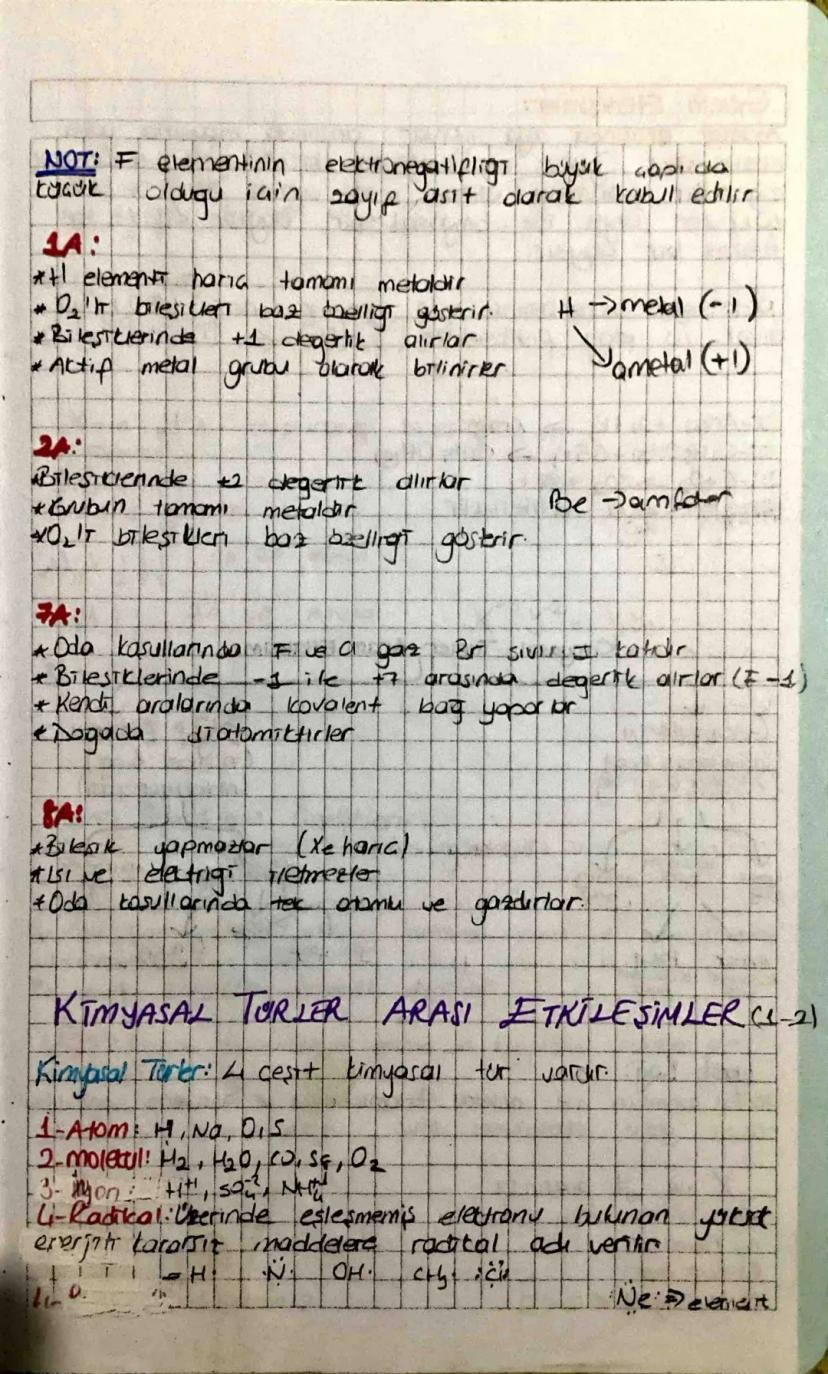 NOT: F elementinin elektronegatifliği büyük çapı da
küçük olduğu için zayıf asit olarak kabul edilir
1A:
*H elementi hariç tamamı metaldir
* O₂'li bileşikleri baz özelliği gösterir.
H → metal (-1)
* Bileşiklerinde +1 değerlik alırlar
ametal (+1)
* Aktif metal grubu olarak bilinirler
2A:
*Bileşiklerinde +2 değerlik alırlar
*Grubun tamamı metaldir
Be → amfoter
*O₂'li bileşikleri baz özelliği gösterir.
7A:
* Oda koşullarında F ve Cl gaz Br sıvı, I katıdır
* Bileşiklerinde -1 ile +7 arasında değerlik alırlar (F -1)
* Kendi aralarında kovalent bağ yaparlar
* Doğada diatomiktirler
8A:
*Bileşik yapmazlar (Xe hariç)
*Isı ve elektriği iletmezler
*Oda koşullarında tek atomlu ve gazdırlar.
KİMYASAL TÜRLER ARASI ETKİLEŞİMLER (1-2)
Kimyasal Türler: 4 çeşit kimyasal tür vardır.
1-Atom: H, Na, O, S
2-Molekül: H₂, H₂O, CO, S₈, O₂
3- İyon: H⁺, SO₄⁻², NH₄⁺
4-Radikal: Üzerinde eşleşmemiş elektronu bulunan yüksek
enerjili kararsız maddelere radikal adı verilir
H· N· OH· CH₃·
Ne: ⇒ element